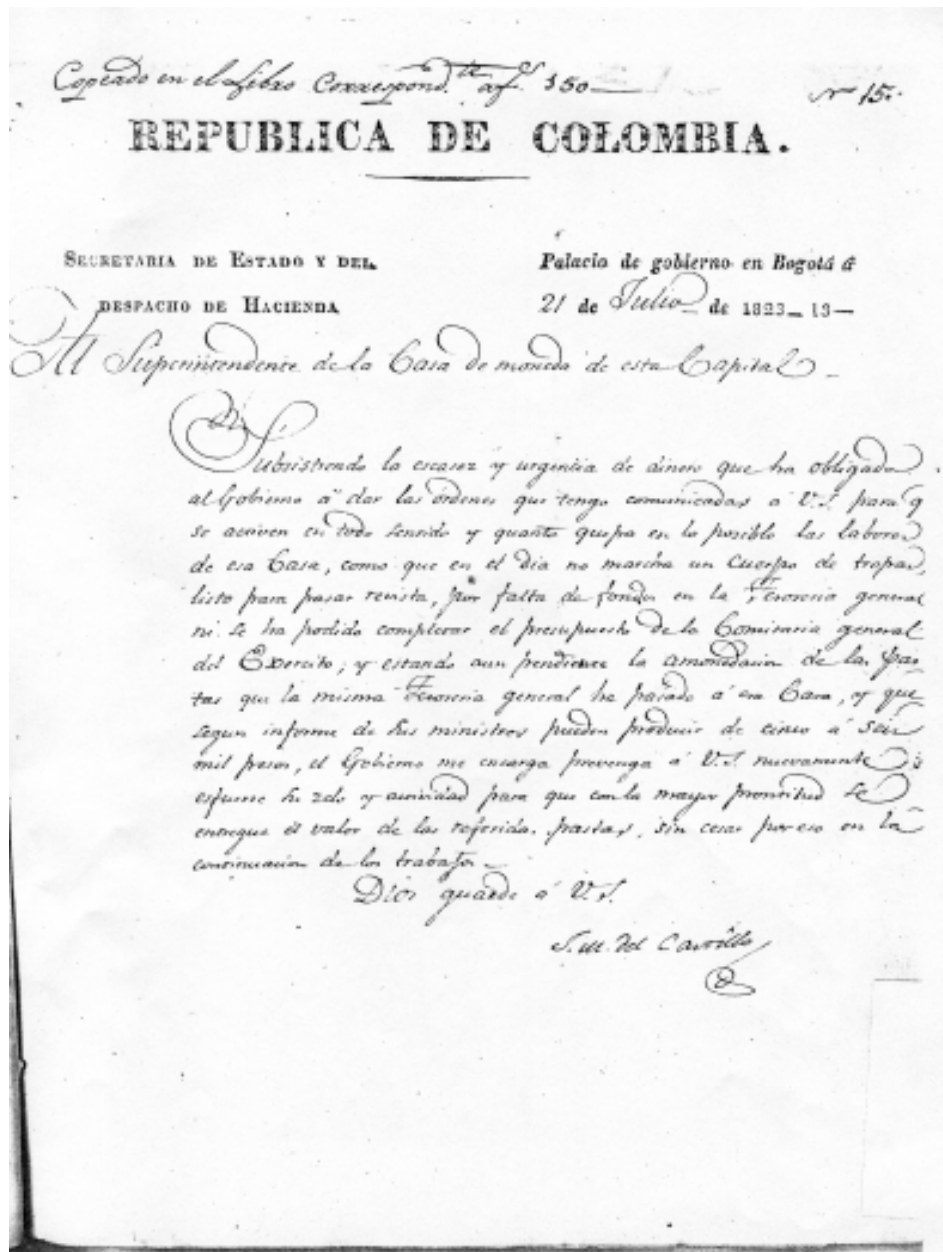 Copeado en el Libro Correspond.te a f.s 150
Nº 15.
REPUBLICA DE COLOMBIA.
SECRETARIA DE ESTADO Y DEL
DESPACHO DE HACIENDA
Palacio de gobierno en Bogotá á
21 de Julio de 1823_13_
Al Superintendente de la Casa de moneda de esta Capital_
Subsistiendo la escasez y urgencia de dinero que ha obligado
al Gobierno á dar las órdenes que tengo comunicadas á V.S. para q
se activen en todo sentido y quanto quepa en lo posible las labores
de esa Casa, como que en el dia no marcha un Cuerpo de tropas,
listo para pasar revista, por falta de fondos en la Tesoreria general
ni se ha podido completar el presupuesto de la Comisaria general
del Exercito; y estando aun pendiente la amonedacion de las pas-
tas que la misma Tesoreria general ha pasado á esa Casa, y que
segun informe de sus ministros pueden producir de cinco á seis
mil pesos, el Gobierno me encarga prevenga á V.S. nuevamente
esfuerze su zelo y actividad para que con la mayor prontitud se
entregue el valor de las referidas pastas, sin cesar por eso en la
continuacion de los trabajos_
Dios guarde á V.S.
J. M. del Castillo